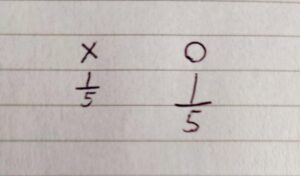 X O
1/5 1/5